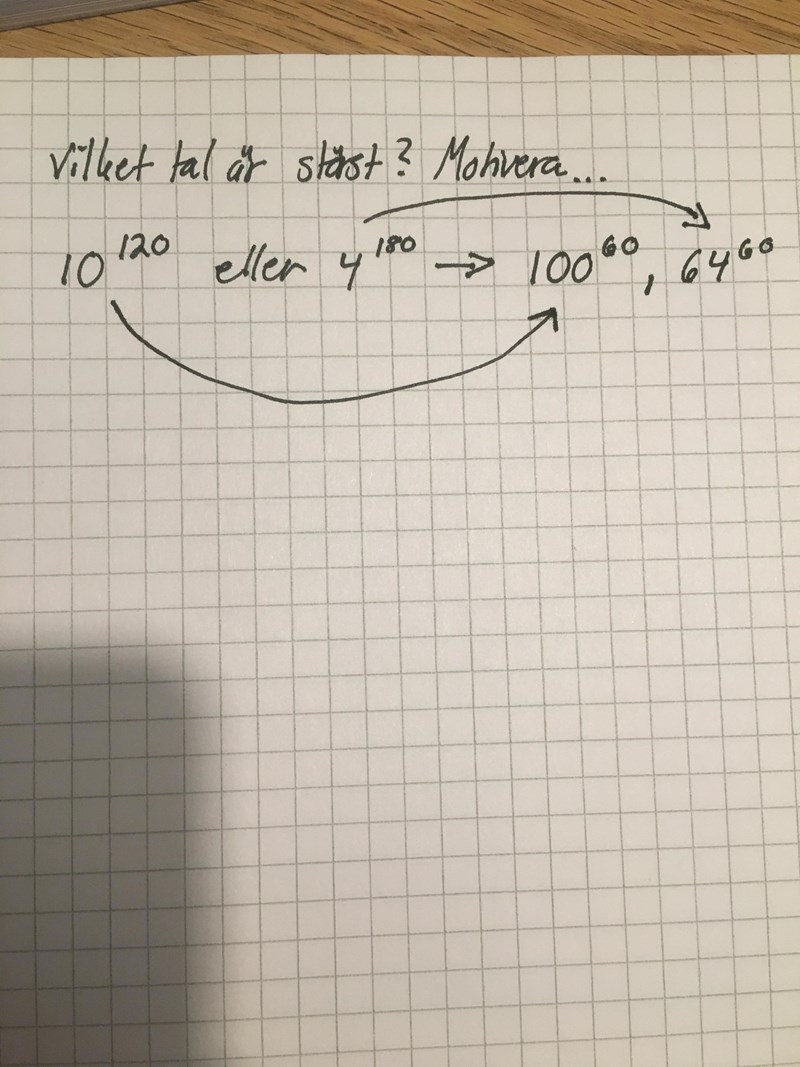 Vilket tal är störst? Motivera...
10^120 eller 4^180 → 100^60, 64^60